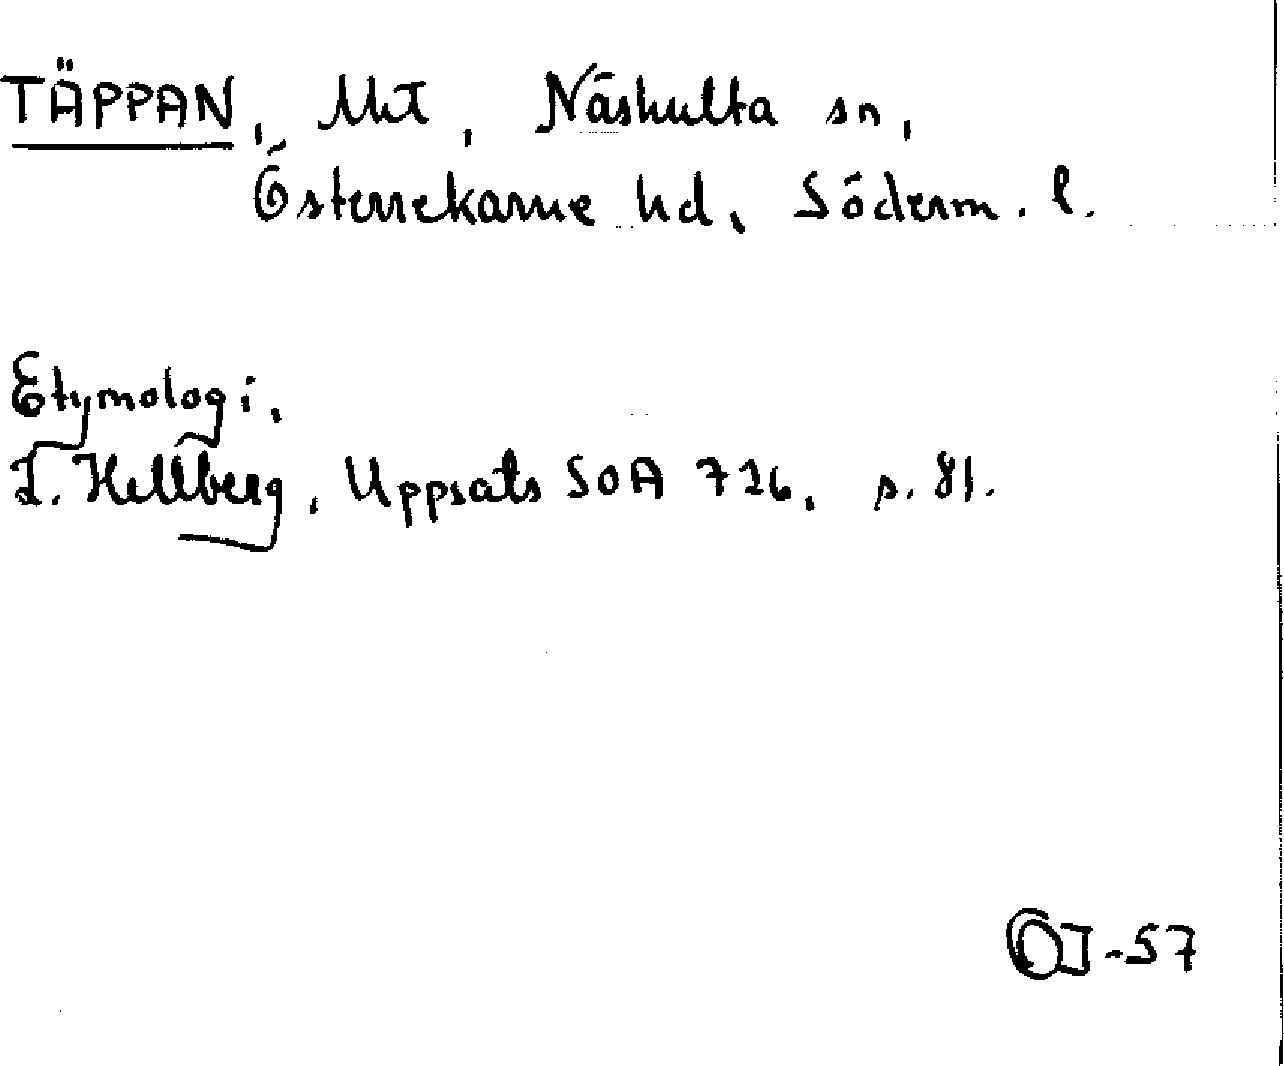 TÄPPAN, Näshulta sn,
Österrekarne hd, Söderm. l.
Etymologi,
L. Hellberg, Uppsats SOA 726, s. 81.
OJ-57